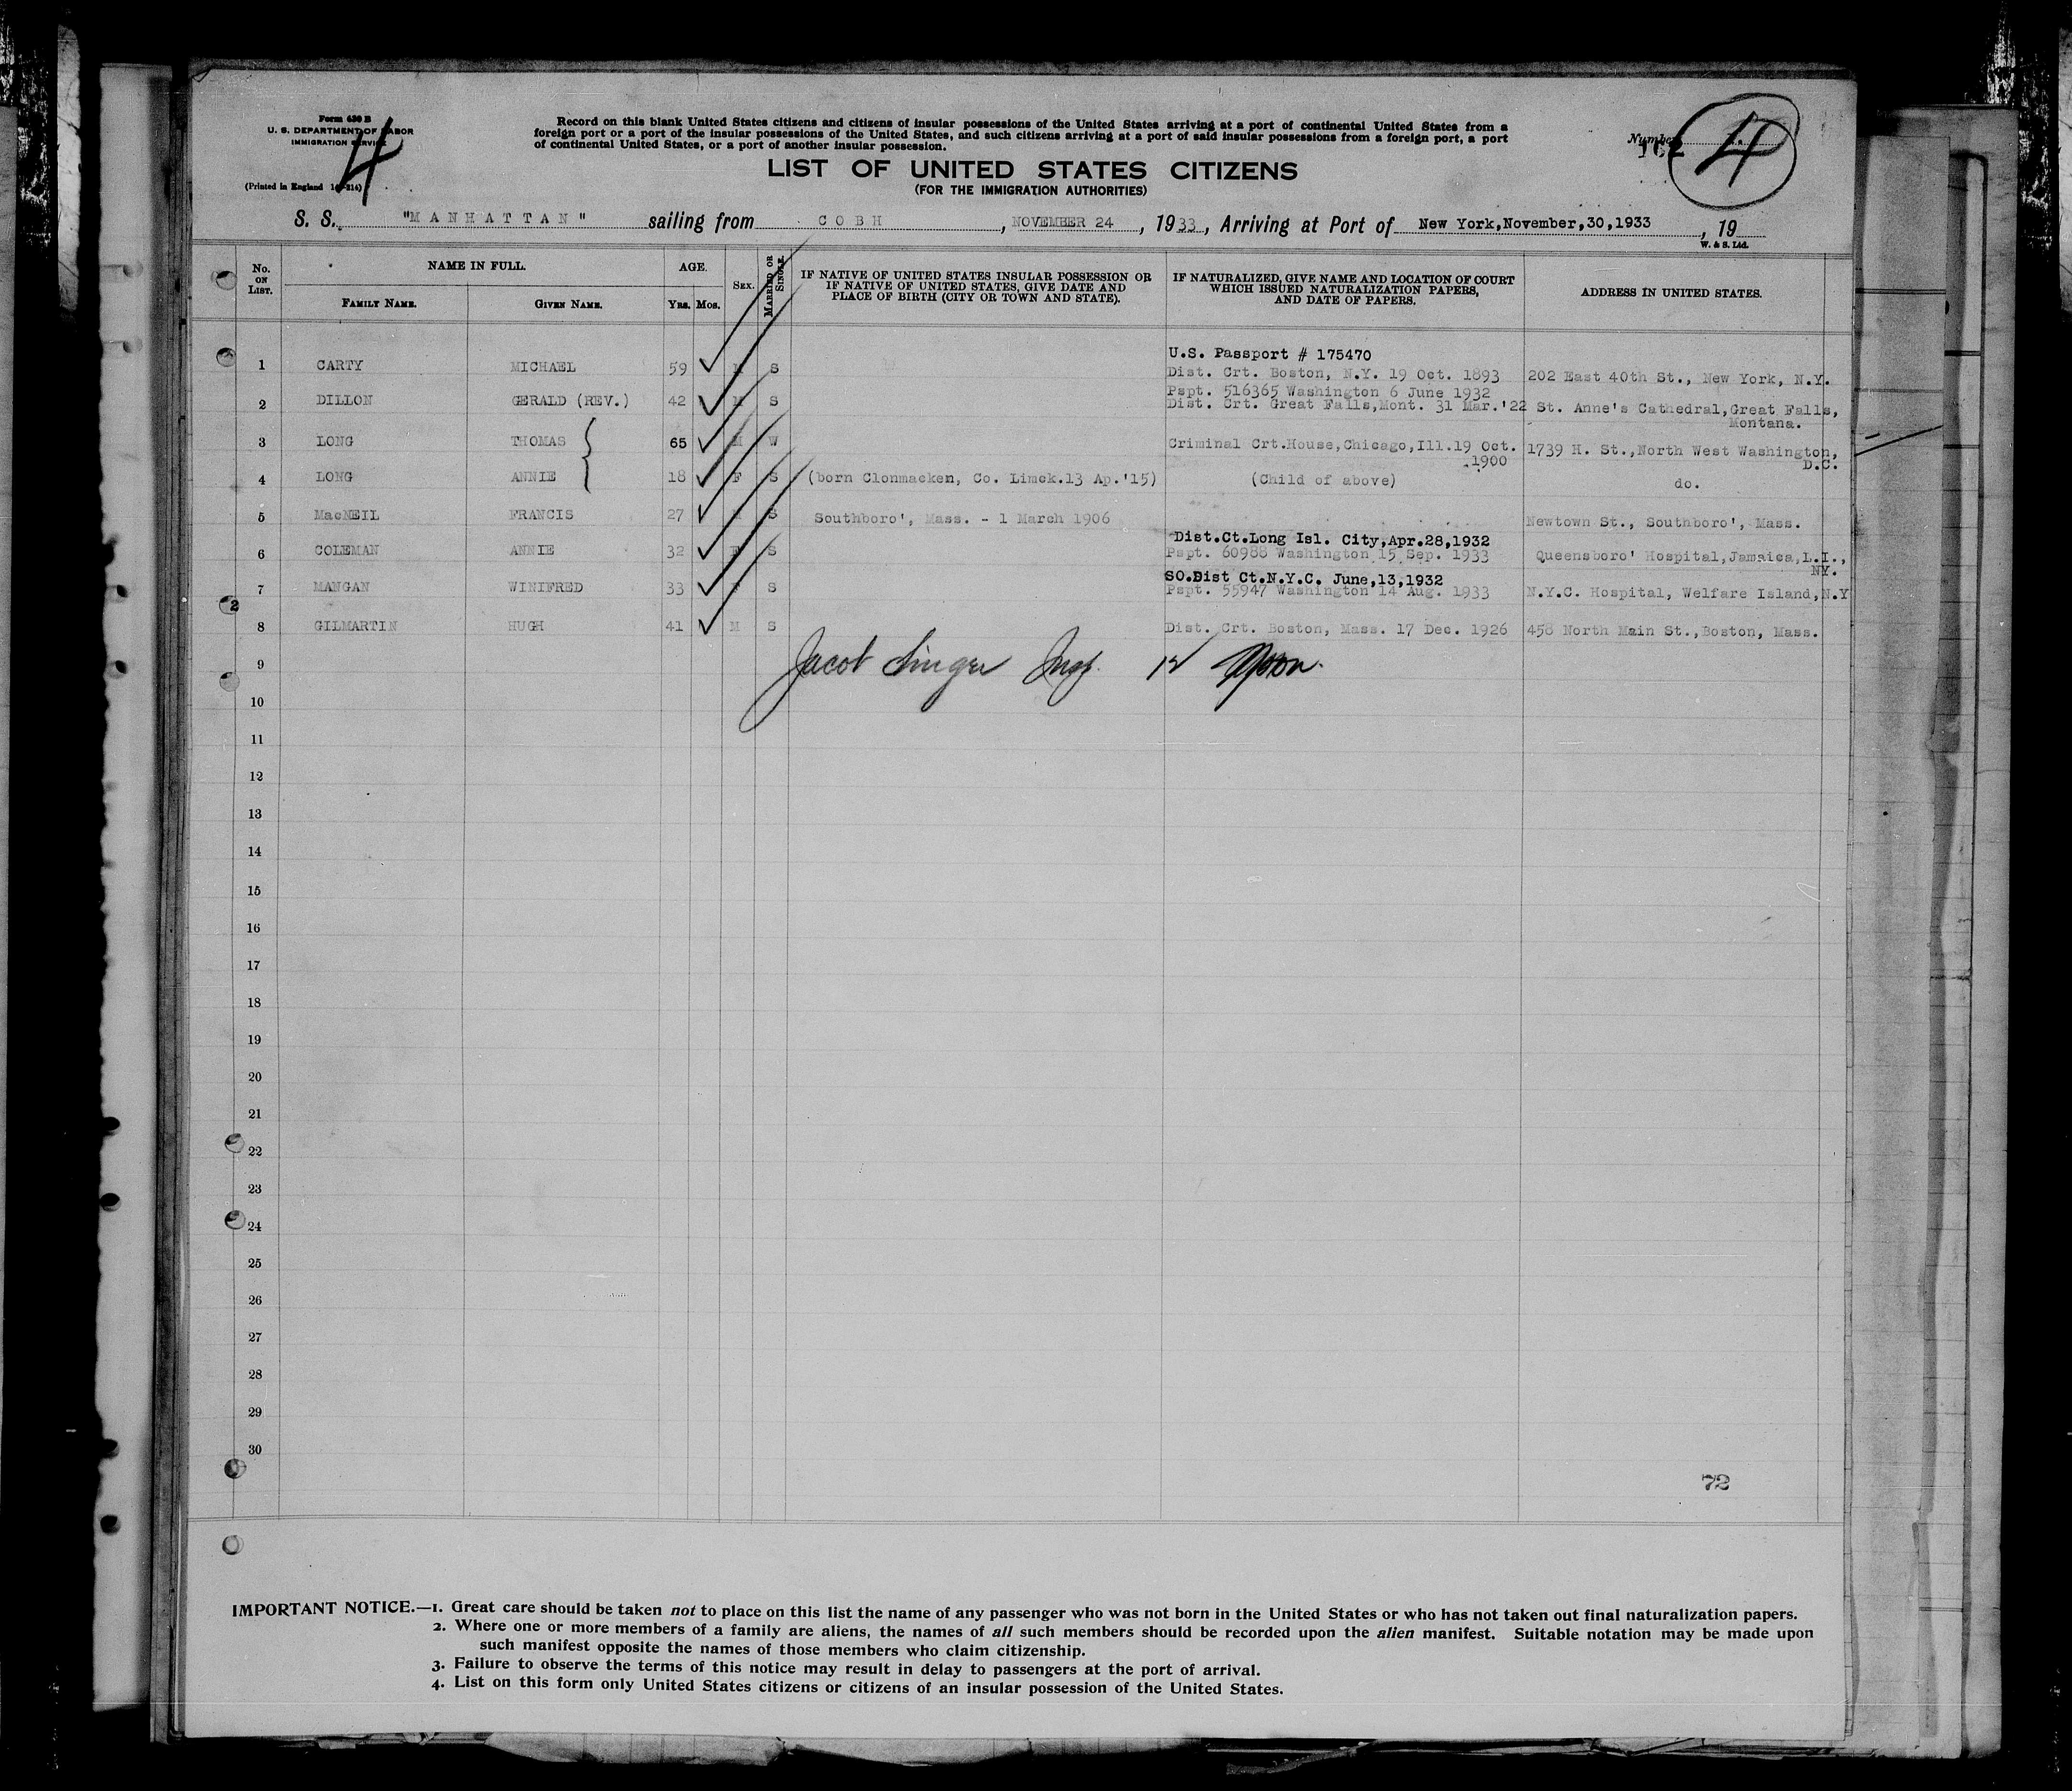 Form 630 B
U. S. DEPARTMENT OF LABOR
IMMIGRATION SERVICE
(Printed in England
4
Record on this blank United States citizens and citizens of insular possessions of the United States arriving at a port of continental United States from a
foreign port or a port of the insular possessions of the United States, and such citizens arriving at a port of said insular possessions from a foreign port, a port
of continental United States, or a port of another insular possession.
Number
4
LIST OF UNITED STATES CITIZENS
(FOR THE IMMIGRATION AUTHORITIES)
S. S. "MANHATTAN" sailing from COBH, NOVEMBER 24, 1933, Arriving at Port of New York,November,30,1933, 19
W. & S. Ltd.
No. ON LIST. NAME IN FULL. AGE. SEX. MARRIED OR SINGLE. IF NATIVE OF UNITED STATES INSULAR POSSESSION OR IF NATIVE OF UNITED STATES, GIVE DATE AND PLACE OF BIRTH (CITY OR TOWN AND STATE). IF NATURALIZED, GIVE NAME AND LOCATION OF COURT WHICH ISSUED NATURALIZATION PAPERS, AND DATE OF PAPERS. ADDRESS IN UNITED STATES.
FAMILY NAME. GIVEN NAME. YRS. MOS.
U.S. Passport # 175470
1 CARTY MICHAEL 59 M S Dist. Crt. Boston, N.Y. 19 Oct. 1893 202 East 40th St., New York, N.Y.
Pspt. 516365 Washington 6 June 1932
2 DILLON GERALD (REV.) 42 M S Dist. Crt. Great Falls,Mont. 31 Mar.'22 St. Anne's Cathedral,Great Falls,
Montana.
3 LONG THOMAS 65 M W Criminal Crt.House,Chicago,Ill.19 Oct. 1739 H. St.,North West Washington,
1900 D.C.
4 LONG ANNIE 18 F S (born Clonmacken, Co. Limck.13 Ap.'15) (Child of above) do.
5 MacNEIL FRANCIS 27 M S Southboro', Mass. - 1 March 1906 Newtown St., Southboro', Mass.
Dist.Ct.Long Isl. City,Apr.28,1932
6 COLEMAN ANNIE 32 F S Pspt. 60988 Washington 15 Sep. 1933 Queensboro' Hospital,Jamaica,L.I.,
NY.
SO.Dist Ct.N.Y.C. June,13,1932
7 MANGAN WINIFRED 33 F S Pspt. 55947 Washington 14 Aug. 1933 N.Y.C. Hospital, Welfare Island,N.Y
2
8 GILMARTIN HUGH 41 M S Dist. Crt. Boston, Mass. 17 Dec. 1926 458 North Main St.,Boston, Mass.
9 Jacob Singer Insp.
10
11
12
13
14
15
16
17
18
19
20
21
22
23
24
25
26
27
28
29
30
72
IMPORTANT NOTICE.—1. Great care should be taken not to place on this list the name of any passenger who was not born in the United States or who has not taken out final naturalization papers.
2. Where one or more members of a family are aliens, the names of all such members should be recorded upon the alien manifest. Suitable notation may be made upon
such manifest opposite the names of those members who claim citizenship.
3. Failure to observe the terms of this notice may result in delay to passengers at the port of arrival.
4. List on this form only United States citizens or citizens of an insular possession of the United States.